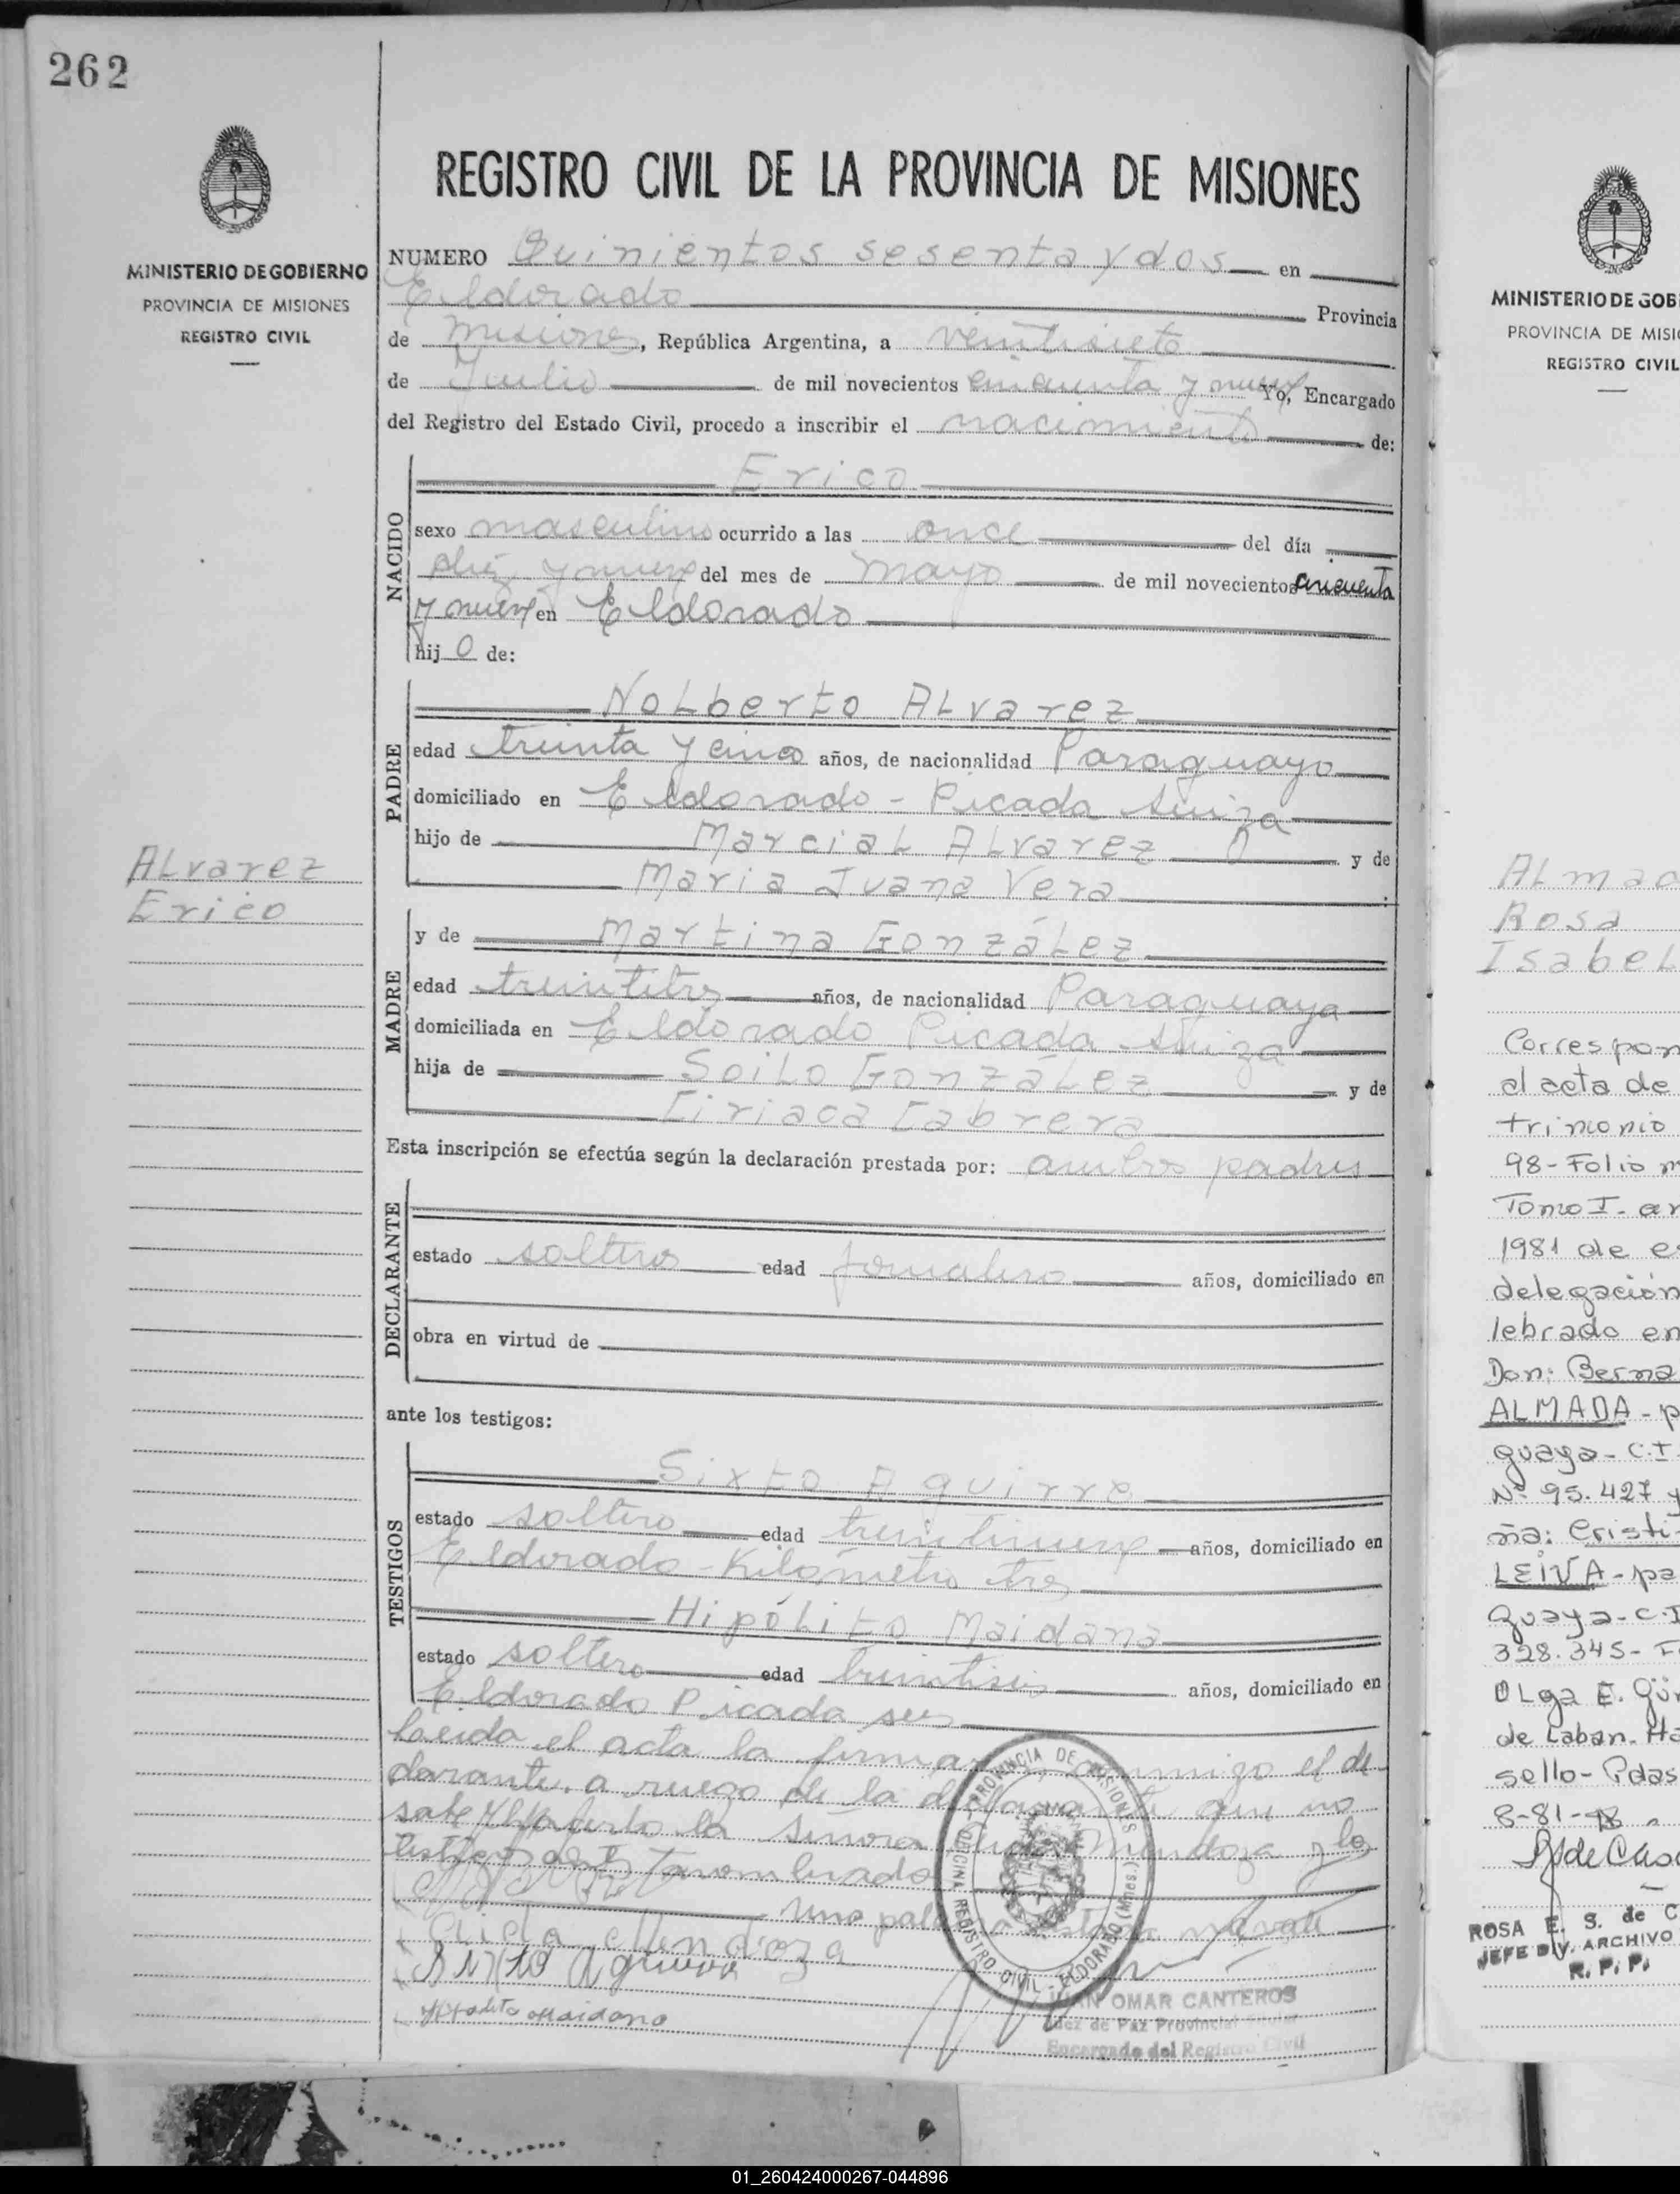 262
MINISTERIO DE GOBIERNO
PROVINCIA DE MISIONES
REGISTRO CIVIL
ALvarez
Erico
REGISTRO CIVIL DE LA PROVINCIA DE MISIONES
NUMERO Quinientos sesenta y dos en
Eldorado Provincia
de Misiones, República Argentina, a veintisiete
de Julio de mil novecientos cincuenta y nueve Yo, Encargado
del Registro del Estado Civil, procedo a inscribir el nacimiento de:
NACIDO
Erico
sexo masculino ocurrido a las once del día
diez y nueve del mes de Mayo de mil novecientos cincuenta
y nueve en Eldorado
hij o de:
PADRE
NoLberto ALvarez
edad treinta y cinco años, de nacionalidad Paraguayo
domiciliado en Eldorado - Picada Suiza
hijo de MarciaL ALvarez y de
Maria Juana Vera
MADRE
y de Martina GonzáLez
edad treintitres años, de nacionalidad Paraguaya
domiciliada en Eldorado Picada Suiza
hija de SoiLo GonzáLez y de
Ciriaca Cabrera
Esta inscripción se efectúa según la declaración prestada por: ambos padres
DECLARANTE
estado solteros edad jornalero años, domiciliado en
obra en virtud de
ante los testigos:
TESTIGOS
Sixto Aguirre
estado soltero edad treintinueve años, domiciliado en
Eldorado - Kilómetro tres
HipóLito Maidana
estado soltero edad treintiseis años, domiciliado en
Eldorado Picada
Leida el acta la firma conmigo el de-
clarante, a ruego de la declarante que no
sabe hacerlo la señora Mendoza y los
testigos
Una
Mendoza
Sixto Aguirre
Maidana
PROVINCIA DE MISIONES
OFICINA REGISTRO CIVIL - ELDORADO (Mnes.)
JUAN OMAR CANTEROS
Juez de Paz Provincial
Encargado del Registro Civil
MINISTERIO DE GOBI
PROVINCIA DE MISIO
REGISTRO CIVIL
ALmad
Rosa
IsabeL
Correspon
al acta de
trimonio
98-Folio
Tomo I.
1981 de e
delegación
lebrado en
Don: Berna
ALMADA - p
guaya - C.I
Nº 95.427 y
ña: Cristi
LEIVA - pa
guaya - C.I
328.345-
OLga E.
de Laban.
sello - Pdas
8-81-
ROSA E. S. de C
JEFE DIV. ARCHIVO
R. P. P.
01_260424000267-044896